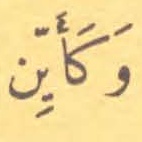 وَكَأَيِّن